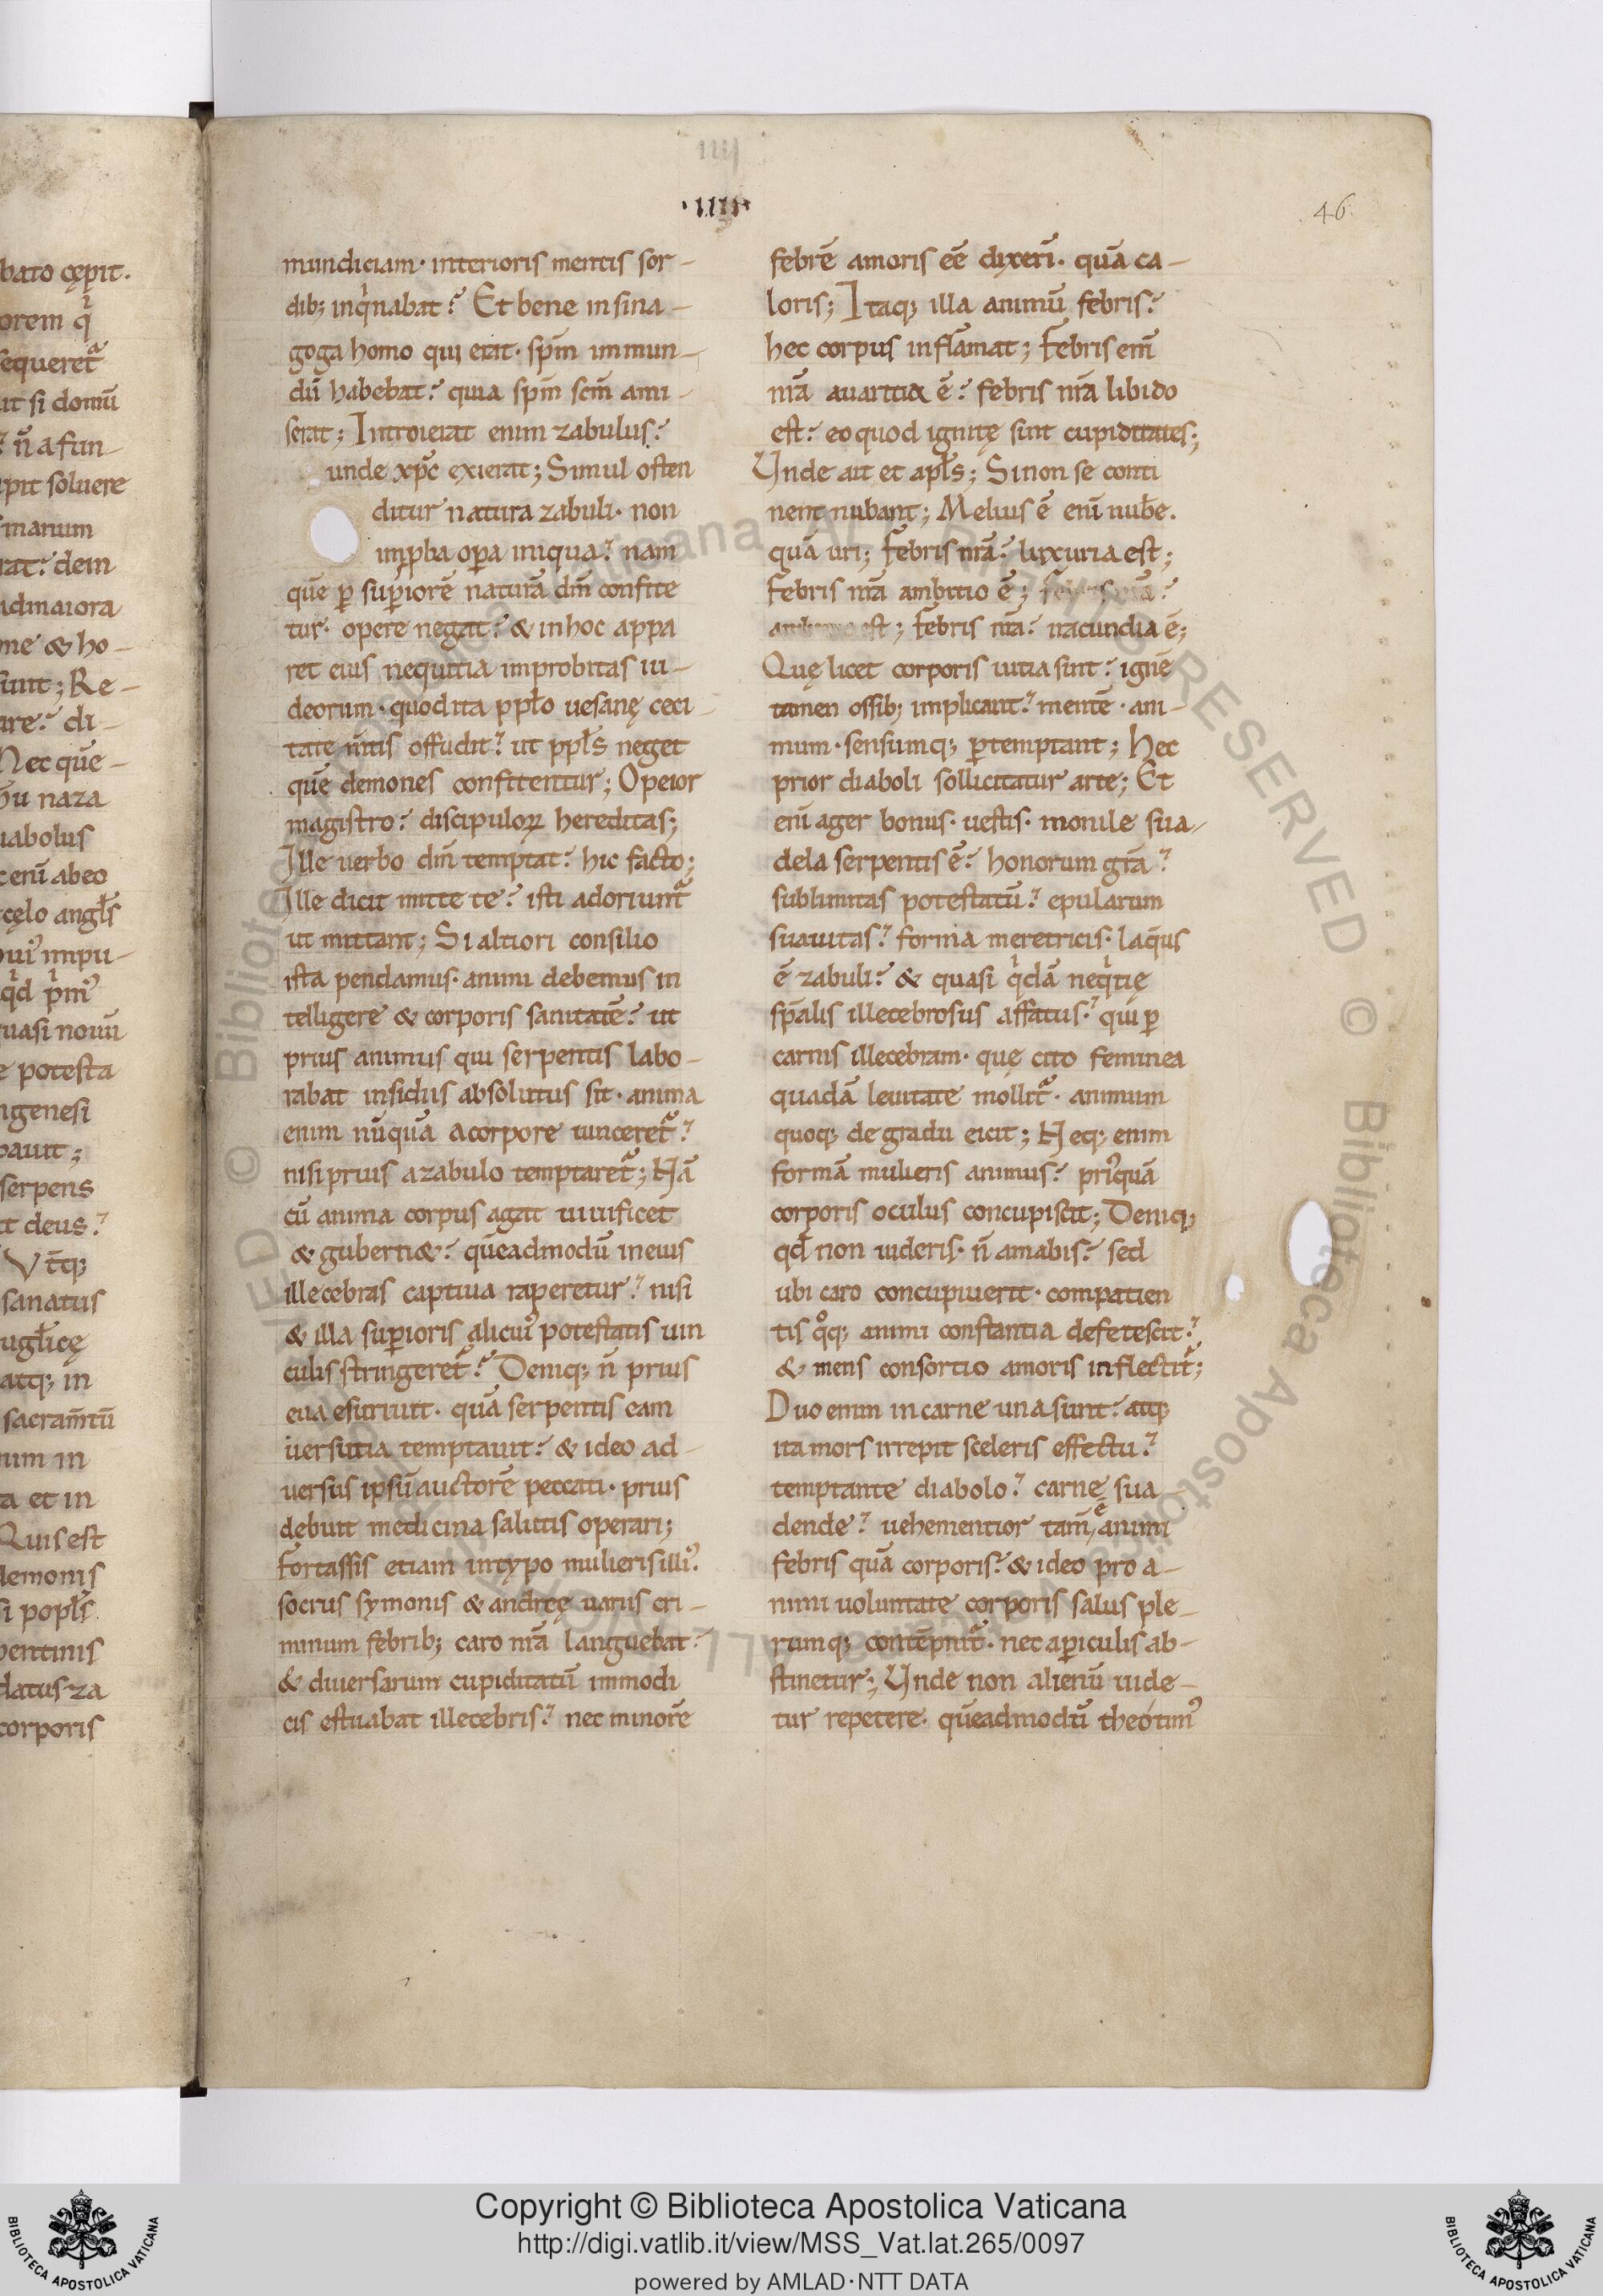 bato cępit.
orem q̓
sequeret᷑
ut si domū
n̄ a fun
pit soluere
manum
rat. dem
admaiora
me & ho-
sunt; Re-
are. di-
Nec quē-
hu naza
iabolus
enī abeo
cęlo angl̄s
ui᷒ impu-
q̓d p̓m᷒
uasi nouū
e potesta
ngenesi
pauit;
serpens
t deus.
Vt̄q;
sanatus
ugl̄icę
atq; in
sacram̄tū
nim in
ta et in
Quis est
demonis
si popl̄s
pentinis
datus za
corporis
IIII
·IIII·
46
mundiciam· interioris mentis sor-
dib; inq̓nabat. Et bene in sina-
goga homo qui erat· sp̄m immun-
dū habebat. quia sp̄m sc̄m ami-
serat; Introierat enim zabulus.
unde xp̄c exierat; Simul osten
ditur natura zabuli· non
imꝓba oꝑa iniqua. nam
quē ꝑ suꝑiorē naturā dn̄m confite
tur· opere negat. & in hoc appa
ret eius nequitia improbitas iu-
deorum· quod ita ppl̄o uesanę ceci-
tate m̄tis offudit. ut ppl̄s neget
quē demones confitentur; O peior
magistro. discipuloꝝ hereditas;
Ille uerbo dn̄m temptat. hic facto;
Ille dicit mitte te. isti adoriunt᷑
ut mittant; Si altiori consilio
ista pendamus· animi debemus in
telligere & corporis sanitatē. ut
prius animus qui serpentis labo-
rabat insidiis absolutus sit· anima
enim nūquā a corpore uinceret᷑.
nisi prius a zabulo temptaret᷑; Nā
cū anima corpus agat uiuificet
& gubern&. quēadmodū in eius
illecebras captiua raperetur. nisi
& illa suꝑioris alicui᷒ potestatis uin
culis stringeret᷑. Deniq; n̄ prius
eua esuriuit· quā serpentis eam
uersutia temptauit. & ideo ad-
uersus ipsū auctorē peccati· prius
debuit medicina salutis operari;
Fortassis etiam in typo mulieris illi᷒.
socrus symonis & andreę uariis cri-
minum febrib; caro nr̄a languebat.
& diuersarum cupiditatū immodi
cis estuabat illecebris. nec minorē
febrē amoris eē dixerī· quā ca-
loris; Itaq; illa animū febris.
hec corpus inflāmat; Febris enī
nr̄a auaritia ē. febris nr̄a libido
est. eo quod ignitę sint cupiditates;
Vnde ait et apl̄s; Si non se conti
nent nubant; Melius ē enī nub̄e.
quā uri; Febris nr̄a. luxuria est;
Febris nr̄a ambitio ē; febris nr̄a.
ambitio est; Febris nr̄a. iracundia ē;
Quę licet corporis uitia sint. ignē
tamen ossib; implicant. mentē· ani-
mum· sensumq; ꝑtemptant; Hec
prior diaboli sollicitatur arte; Et
enī ager bonus· uestis· monile sua-
dela serpentis ē. honorum gr̄a.
sublimitas potestatū. epularum
suauitas. forma meretricis· laq̄us
ē zabuli. & quasi q̓dā neq̓tię
sp̄alis illecebrosus affatus. qui ꝑ
carnis illecebram· quę cito feminea
quadā leuitate mollit᷑· animum
quoq; de gradu eicit; Neq; enim
formā mulieris animus. pri᷒quā
corporis oculus concupiscit; Deniq;
qđ non uideris· n̄ amabis. sed
ubi caro concupiuerit· compatien
tis qͦq; animi constantia defetescit.
& mens consortio amoris inflectit᷑;
Duo enim in carne una sunt. atq;
ita mors irrepit sceleris effectu.
temptante diabolo. carne sua
dende. uehementior tam̄ ē animi
febris quā corporis. & ideo pro a-
nimi uoluntate corporis salus ple-
rumq; contēpnit᷑· nec a ꝑiculis ab-
stinetur; Vnde non alienū uide-
tur repetere· quēadmodū theotim᷒
Copyright © Biblioteca Apostolica Vaticana
http://digi.vatlib.it/view/MSS_Vat.lat.265/0097
powered by AMLAD·NTT DATA
BIBLIOTECA APOSTOLICA VATICANA
BIBLIOTECA APOSTOLICA VATICANA